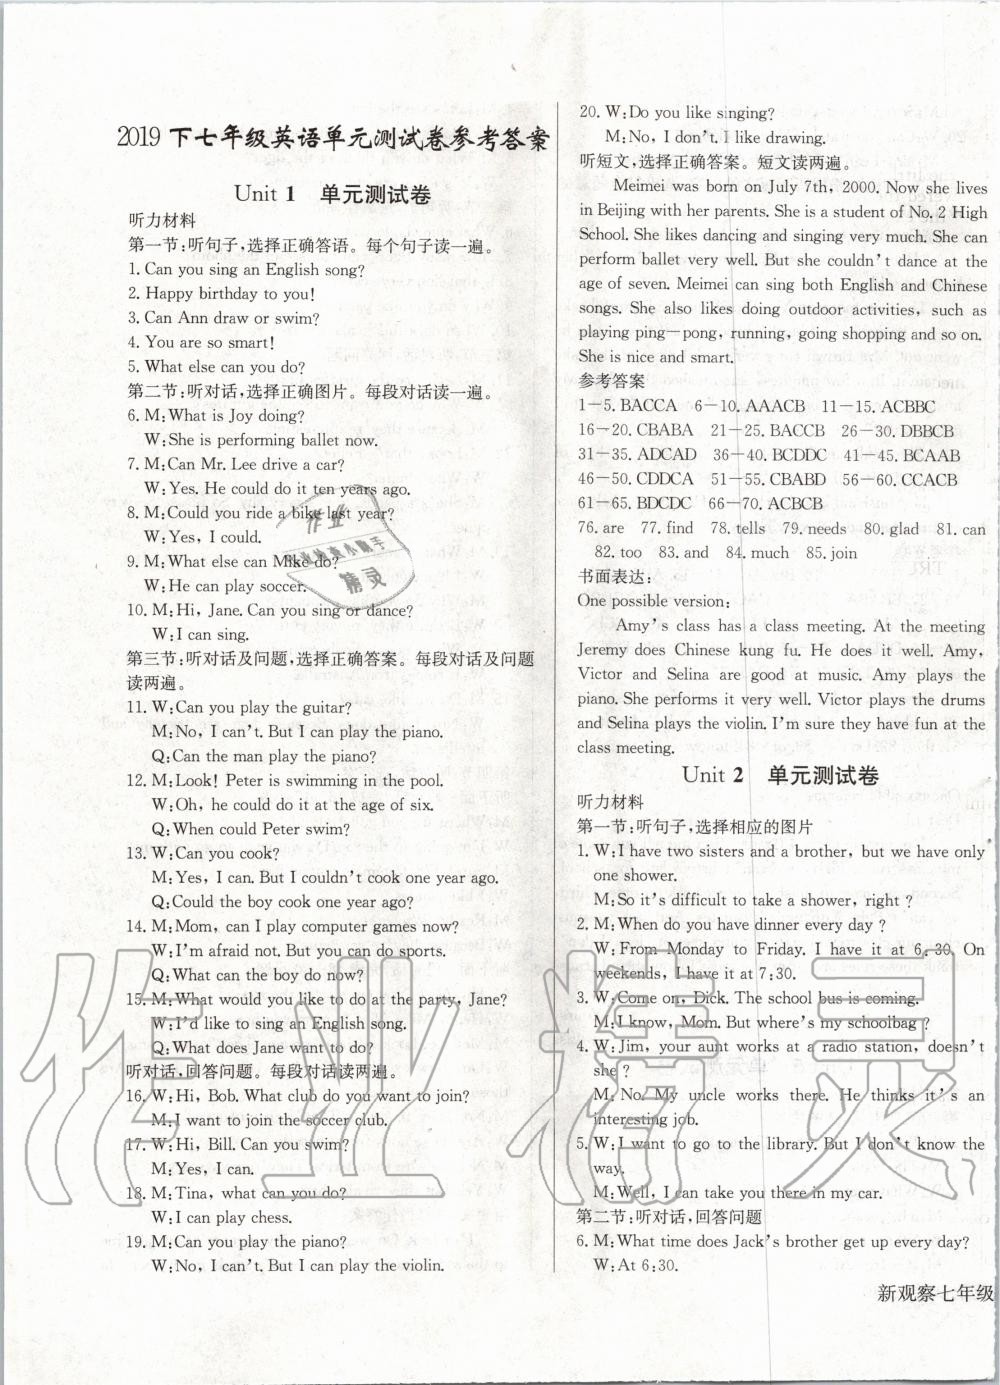 2019下七年级英语单元测试卷参考答案
Unit 1 单元测试卷
听力材料
第一节:听句子,选择正确答语。每个句子读一遍。
1. Can you sing an English song?
2. Happy birthday to you!
3. Can Ann draw or swim?
4. You are so smart!
5. What else can you do?
第二节:听对话,选择正确图片。每段对话读一遍。
6. M:What is Joy doing?
W:She is performing ballet now.
7. M:Can Mr. Lee drive a car?
W:Yes. He could do it ten years ago.
8. M:Could you ride a bike last year?
W:Yes, I could.
9. M:What else can Mike do?
W:He can play soccer.
10. M:Hi, Jane. Can you sing or dance?
W:I can sing.
第三节:听对话及问题,选择正确答案。每段对话及问题
读两遍。
11. W:Can you play the guitar?
M:No, I can't. But I can play the piano.
Q:Can the man play the piano?
12. M:Look! Peter is swimming in the pool.
W:Oh, he could do it at the age of six.
Q:When could Peter swim?
13. W:Can you cook?
M:Yes, I can. But I couldn't cook one year ago.
Q:Could the boy cook one year ago?
14. M:Mom, can I play computer games now?
W:I'm afraid not. But you can do sports.
Q:What can the boy do now?
15. M:What would you like to do at the party, Jane?
W:I'd like to sing an English song.
Q:What does Jane want to do?
听对话,回答问题。每段对话读两遍。
16. W:Hi, Bob. What club do you want to join?
M:I want to join the soccer club.
17. W:Hi, Bill. Can you swim?
M:Yes, I can.
18. M:Tina, what can you do?
W:I can play chess.
19. M:Can you play the piano?
W:No, I can't. But I can play the violin.
20. W:Do you like singing?
M:No, I don't. I like drawing.
听短文,选择正确答案。短文读两遍。
Meimei was born on July 7th, 2000. Now she lives
in Beijing with her parents. She is a student of No. 2 High
School. She likes dancing and singing very much. She can
perform ballet very well. But she couldn't dance at the
age of seven. Meimei can sing both English and Chinese
songs. She also likes doing outdoor activities, such as
playing ping—pong, running, going shopping and so on.
She is nice and smart.
参考答案
1－5. BACCA 6－10. AAACB 11－15. ACBBC
16－20. CBABA 21－25. BACCB 26－30. DBBCB
31－35. ADCAD 36－40. BCDDC 41－45. BCAAB
46－50. CDDCA 51－55. CBABD 56－60. CCACB
61－65. BDCDC 66－70. ACBCB
76. are 77. find 78. tells 79. needs 80. glad 81. can
82. too 83. and 84. much 85. join
书面表达:
One possible version:
Amy's class has a class meeting. At the meeting
Jeremy does Chinese kung fu. He does it well. Amy,
Victor and Selina are good at music. Amy plays the
piano. She performs it very well. Victor plays the drums
and Selina plays the violin. I'm sure they have fun at the
class meeting.
Unit 2 单元测试卷
听力材料
第一节:听句子,选择相应的图片
1. W:I have two sisters and a brother, but we have only
one shower.
M:So it's difficult to take a shower, right ?
2. M:When do you have dinner every day ?
W:From Monday to Friday. I have it at 6:30. On
weekends, I have it at 7:30.
3. W:Come on, Dick. The school bus is coming.
M:I know, Mom. But where's my schoolbag ?
4. W:Jim, your aunt works at a radio station, doesn't
she ?
M: No. My uncle works there. He thinks it's an
interesting job.
5. W:I want to go to the library. But I don't know the
way.
M:Well, I can take you there in my car.
第二节:听对话,回答问题
6. M:What time does Jack's brother get up every day?
W:At 6:30.
新观察七年级
作业
精灵
作业精灵